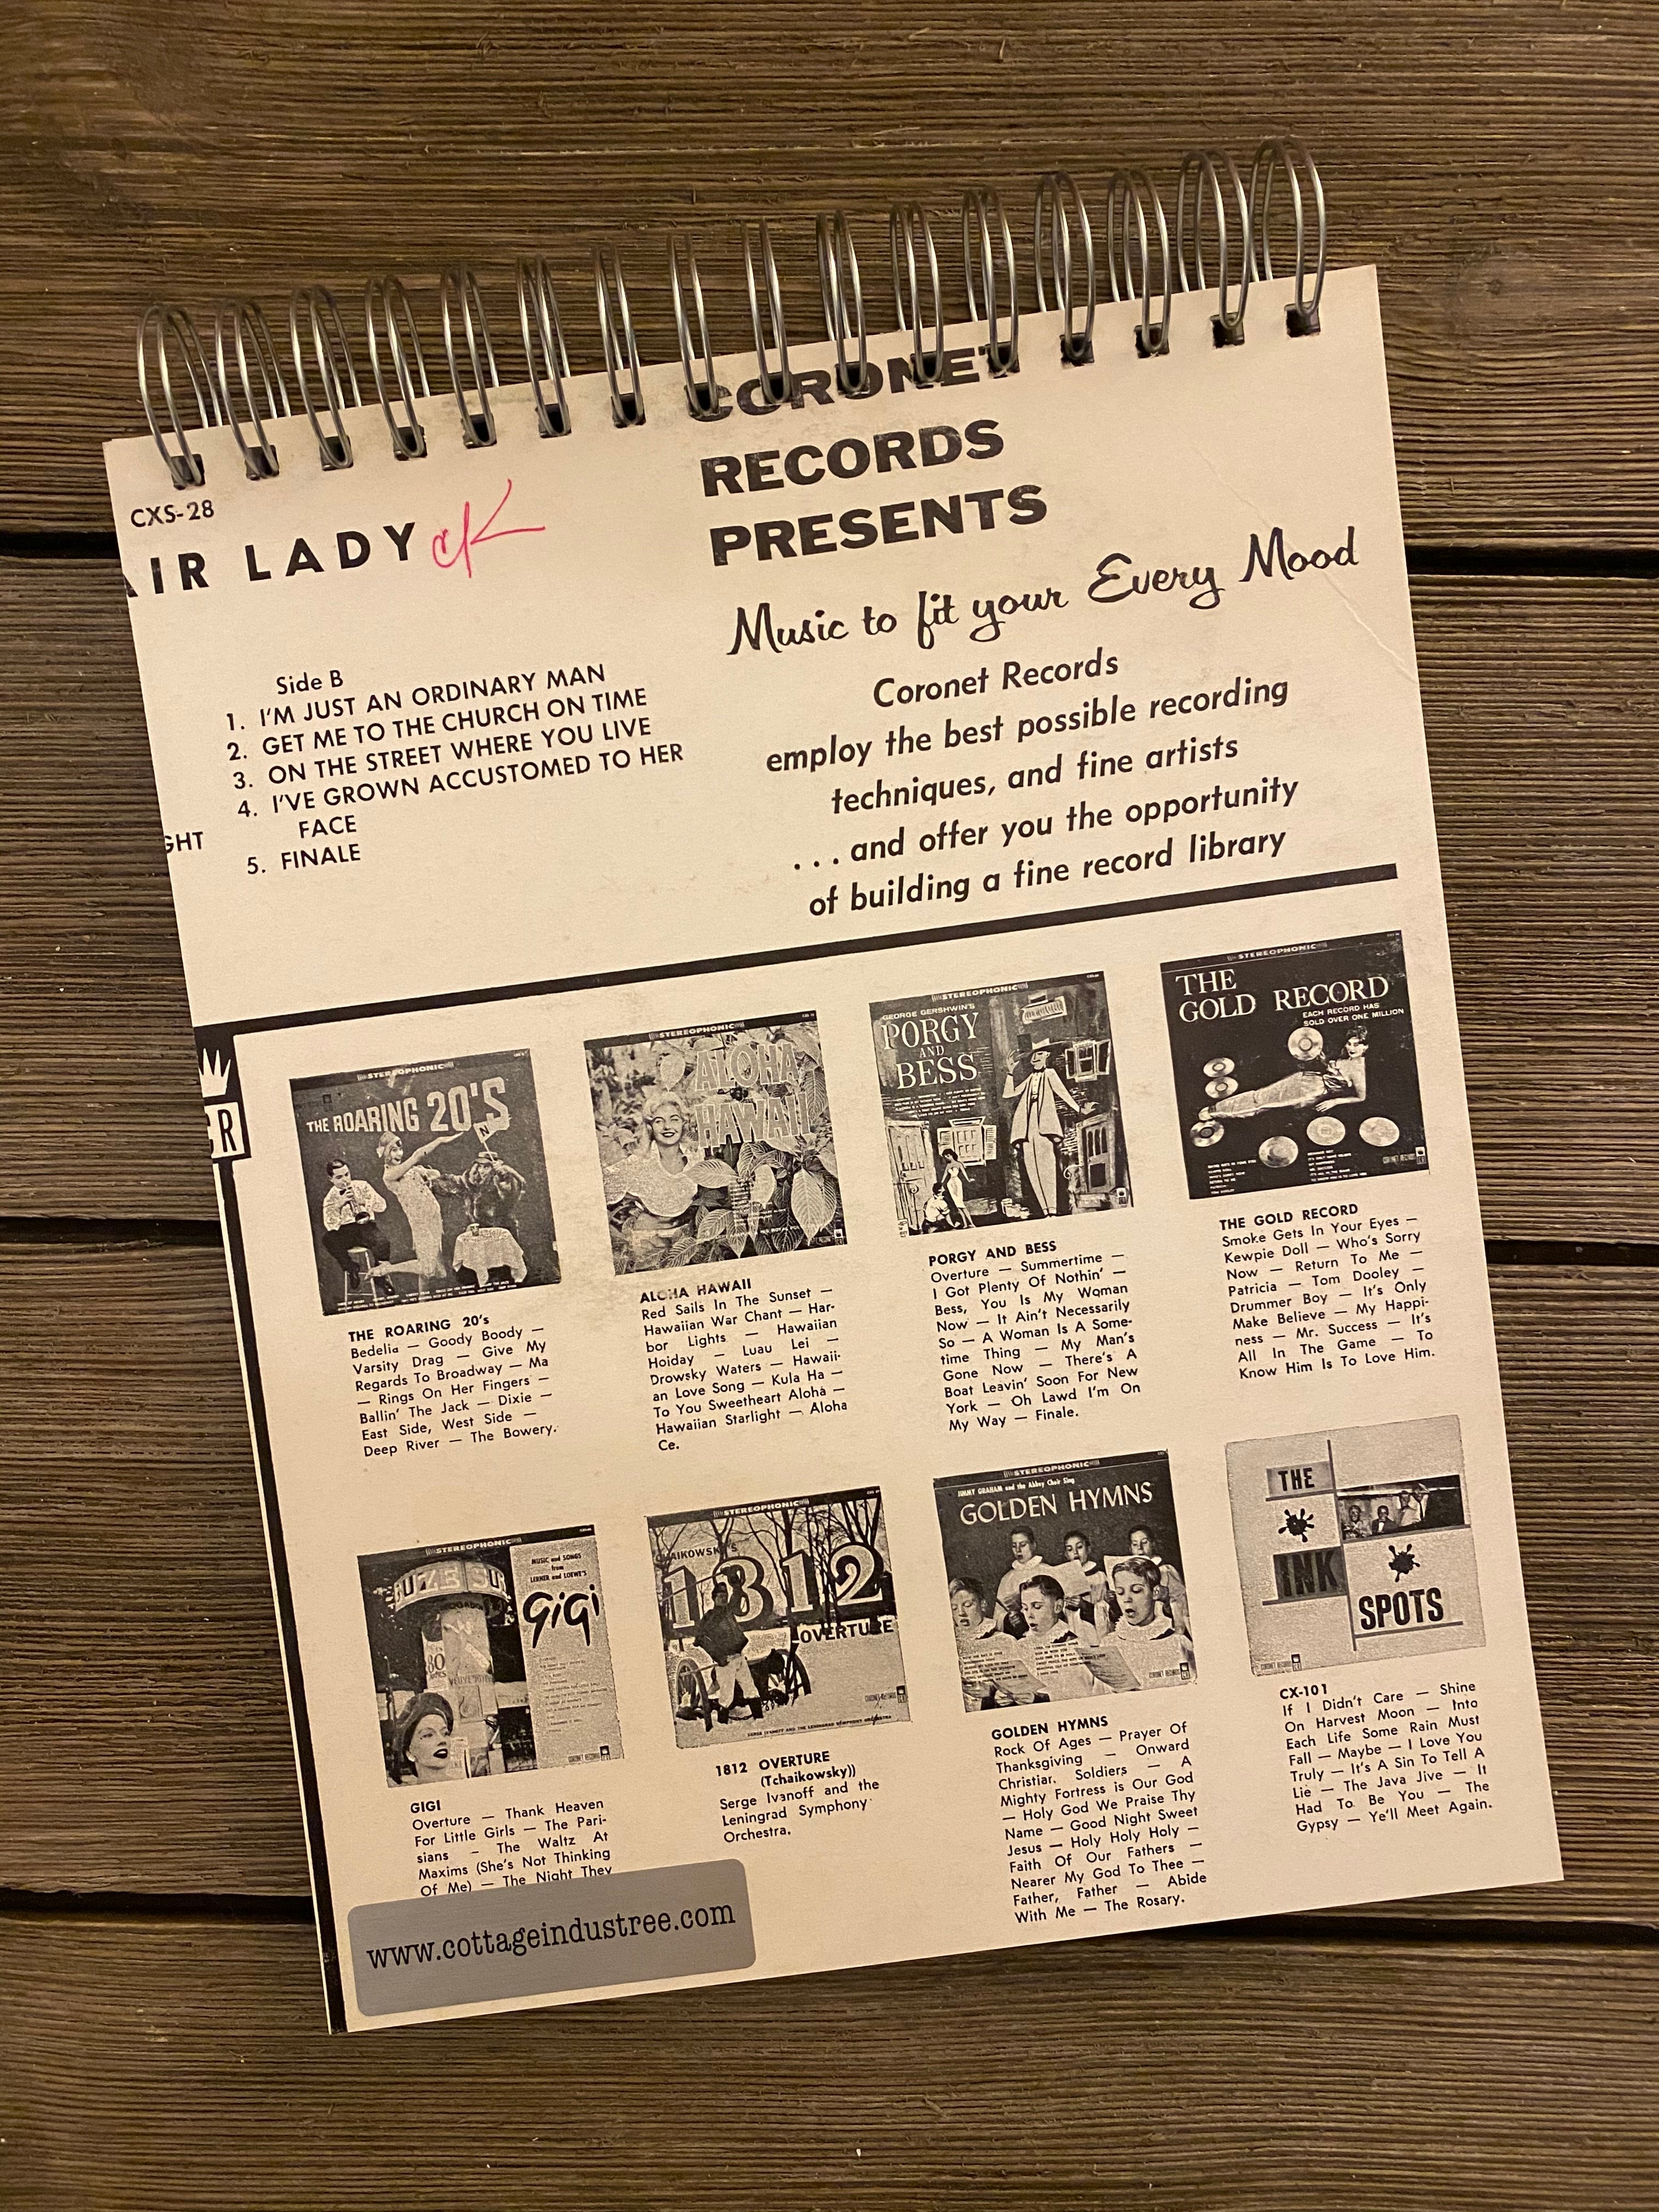 CORONET
RECORDS
PRESENTS
Music to fit your Every Mood
Coronet Records
employ the best possible recording
techniques, and fine artists
. . . and offer you the opportunity
of building a fine record library
CXS-28
AIR LADY
Side B
1. I'M JUST AN ORDINARY MAN
2. GET ME TO THE CHURCH ON TIME
3. ON THE STREET WHERE YOU LIVE
4. I'VE GROWN ACCUSTOMED TO HER
FACE
5. FINALE
GHT
CR
STEREOPHONIC
THE ROARING 20'S
THE ROARING 20's
Bedelia — Goody Boody —
Varsity Drag — Give My
Regards To Broadway — Ma
— Rings On Her Fingers —
Ballin' The Jack — Dixie —
East Side, West Side —
Deep River — The Bowery.
STEREOPHONIC
ALOHA
HAWAII
ALOHA HAWAII
Red Sails In The Sunset —
Hawaiian War Chant — Har-
bor Lights — Hawaiian
Hoiday — Luau Lei —
Drowsky Waters — Hawaii-
an Love Song — Kula Ha —
To You Sweetheart Aloha —
Hawaiian Starlight — Aloha
Ce.
STEREOPHONIC
GEORGE GERSHWIN'S
PORGY
AND
BESS
PORGY AND BESS
Overture — Summertime —
I Got Plenty Of Nothin' —
Bess, You Is My Woman
Now — It Ain't Necessarily
So — A Woman Is A Some-
time Thing — My Man's
Gone Now — There's A
Boat Leavin' Soon For New
York — Oh Lawd I'm On
My Way — Finale.
STEREOPHONIC
THE
GOLD RECORD
EACH RECORD HAS
SOLD OVER ONE MILLION
CORONET RECORDS
THE GOLD RECORD
Smoke Gets In Your Eyes —
Kewpie Doll — Who's Sorry
Now — Return To Me —
Patricia — Tom Dooley —
Drummer Boy — It's Only
Make Believe — My Happi-
ness — Mr. Success — It's
All In The Game — To
Know Him Is To Love Him.
STEREOPHONIC
MUSIC and SONGS
from
LERNER and LOEWE'S
GiGi
CORONET RECORDS
GIGI
Overture — Thank Heaven
For Little Girls — The Pari-
sians — The Waltz At
Maxims (She's Not Thinking
Of Me) — The Night They
STEREOPHONIC
TCHAIKOWSKY'S
1812
OVERTURE
CORONET RECORDS
SERGE IVANOFF AND THE LENINGRAD SYMPHONY ORCHESTRA
1812 OVERTURE
(Tchaikowsky))
Serge Ivanoff and the
Leningrad Symphony
Orchestra.
STEREOPHONIC
JIMMY GRAHAM and the Abbey Choir Sing
GOLDEN HYMNS
CORONET RECORDS
GOLDEN HYMNS
Rock Of Ages — Prayer Of
Thanksgiving — Onward
Christiar. Soldiers — A
Mighty Fortress is Our God
— Holy God We Praise Thy
Name — Good Night Sweet
Jesus — Holy Holy Holy —
Faith Of Our Fathers —
Nearer My God To Thee —
Father, Father — Abide
With Me — The Rosary.
THE
INK
SPOTS
CORONET RECORDS
CX-101
If I Didn't Care — Shine
On Harvest Moon — Into
Each Life Some Rain Must
Fall — Maybe — I Love You
Truly — It's A Sin To Tell A
Lie — The Java Jive — It
Had To Be You — The
Gypsy — Ye'll Meet Again.
www.cottageindustree.com